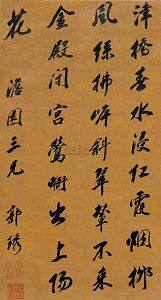 津橋春水浸紅霞烟柳
風絲拂岸斜翠輦不來
金殿閉宮鶯銜出上陽
花
澹園三兄 郭琇